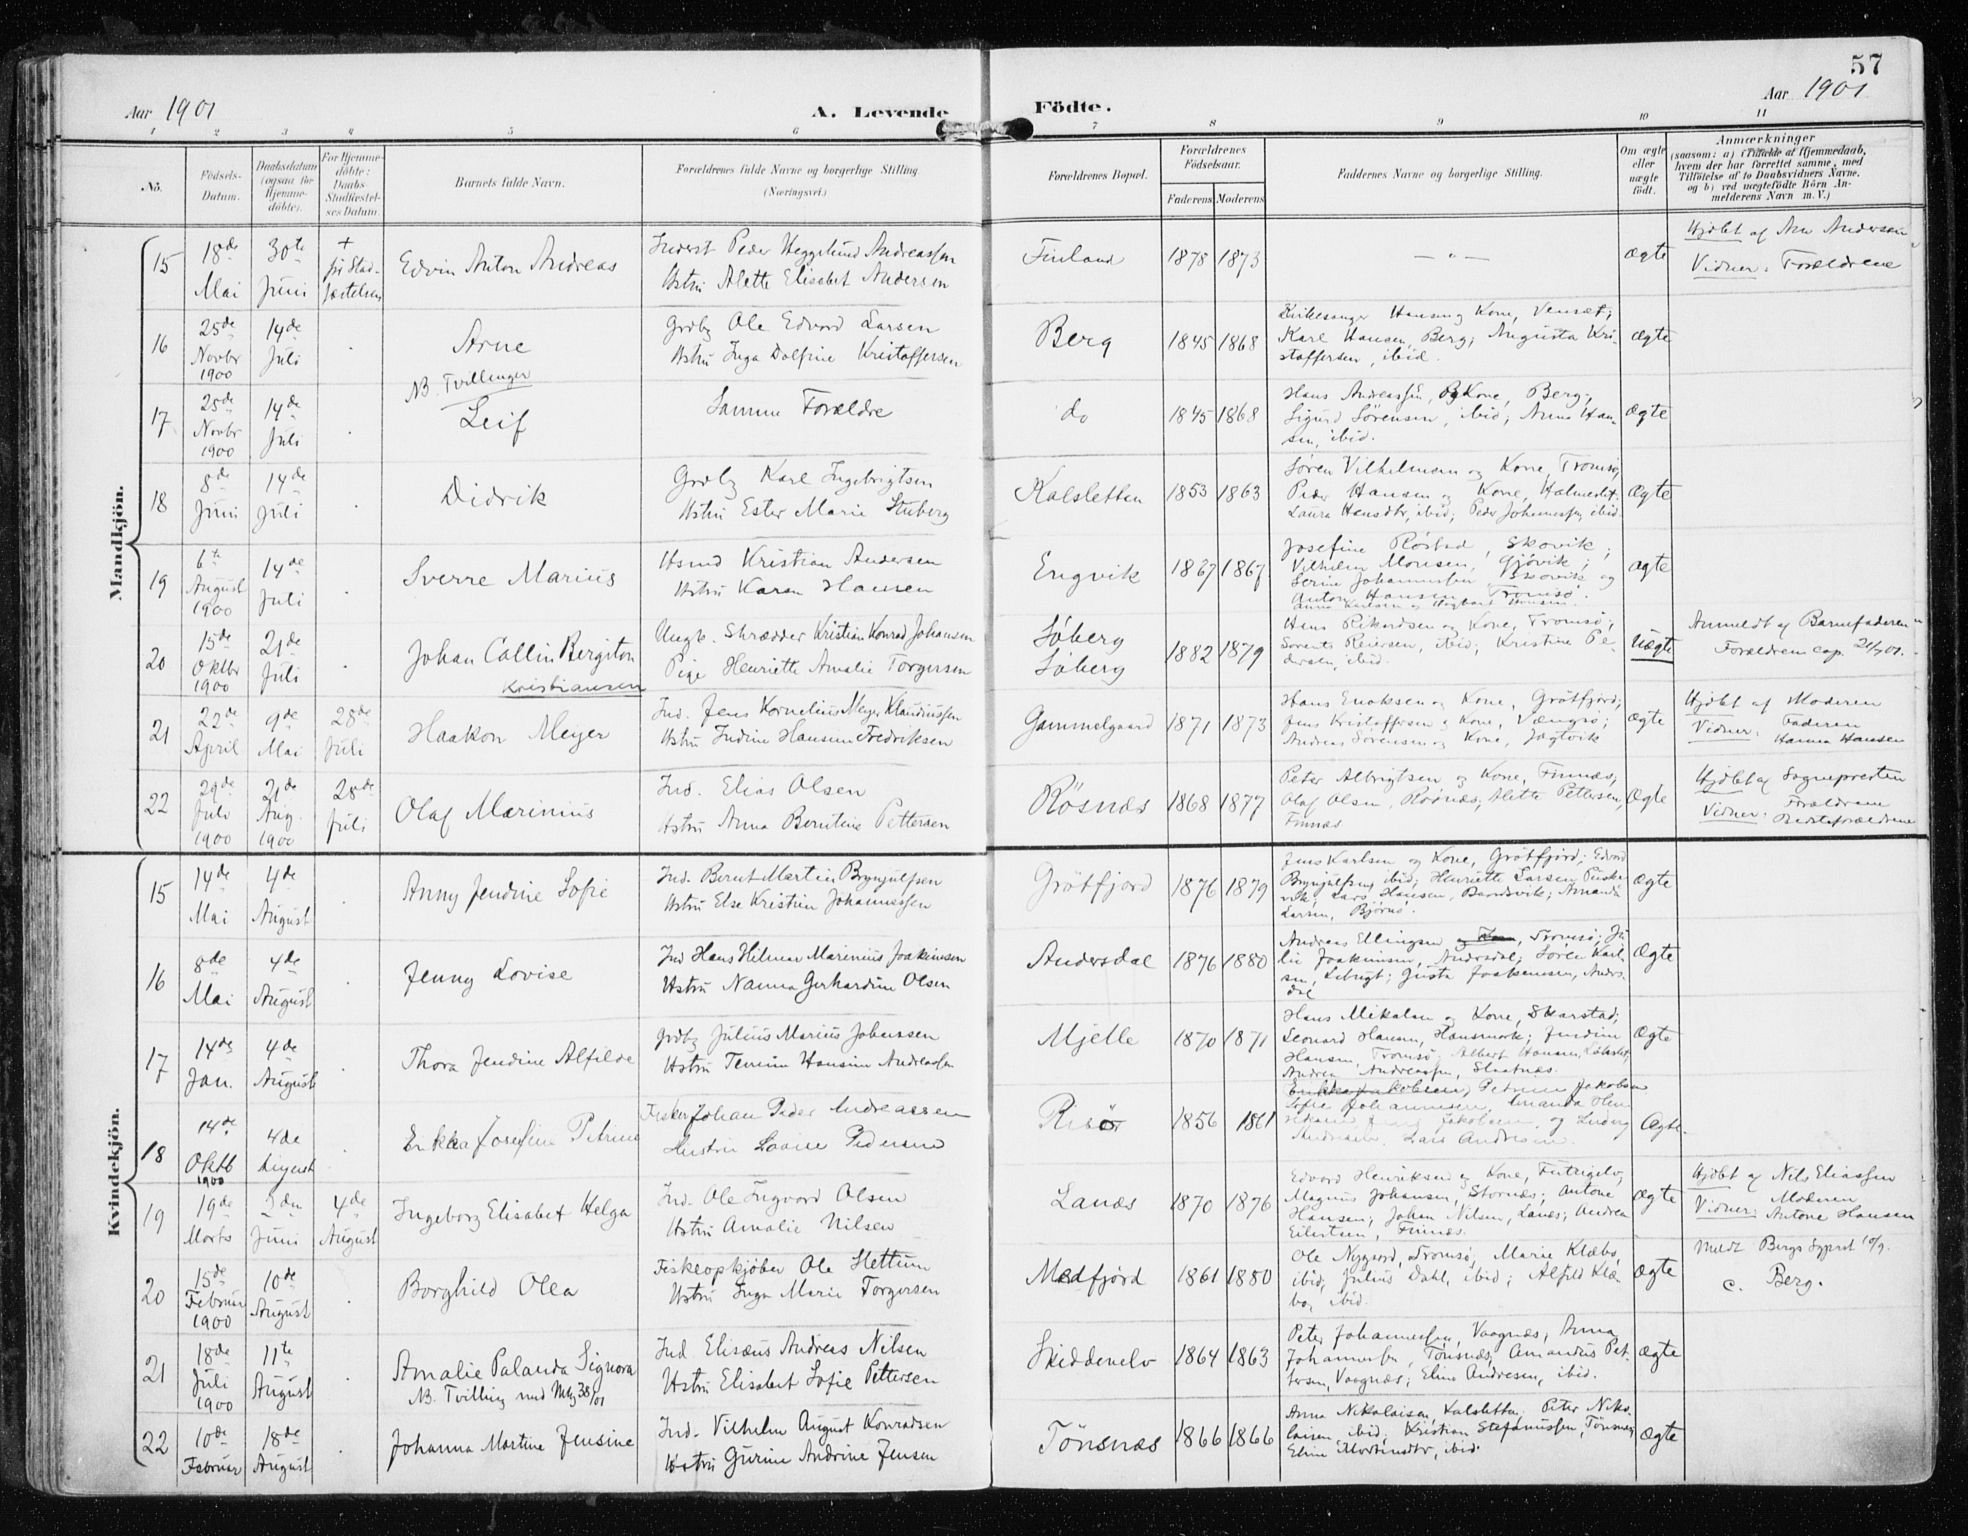 57
Aar 1901
A. Levende Födte.
Aar 1901
1 2 3 4 5 6 7 8 9 10 11
No.
Födsels-Datum.
Daabsdatum (ogsaa for Hjemmedöbte).
For Hjemmedöbte: Daabs Stadfæstelses Datum.
Barnets fulde Navn.
Forældrenes fulde Navne og borgerlige Stilling (Næringsvei.)
Forældrenes Bopæl.
Forældrenes Födselsaar.
Faderens Moderens
Faddernes Navne og borgerlige Stilling.
Om ægte eller uægte født.
Anmærkninger
(saasom: a) i Tilfælde af Hjemmedaab, hvem der har forrettet samme, med Tilföielse af to Daabsvidners Navne, og b) ved uægtefödte Börn Anmelderens Navn m. V.)
Mandkjön.
15 18de Mai 30te Juni + før Stadfæstelsen
Edvin Anton Andreas
Inderst Peder Heggelund Andreassen
Hstru Alette Elisabet Andersen
Finland 1878 1873 — " — ægte
Hjdbt af Ane Andersen
Vidner: Forældrene
16 25de Novbr 1900 14de Juli
Arne
Grdbr Ole Edvard Larsen
Hstru Inga Dolfine Kristoffersen
Berg 1845 1868
Kirkesanger Hansen og Kone, Venset;
Karl Hansen, Berg; Augusta Kristoffersen, ibid.
ægte
NB. Tvillinger
17 25de Novbr 1900 14de Juli
Leif
Samme Forældre
do 1845 1868
Hans Andreassen, og Kone, Berg,
Sigurd Sørensen, ibid; Anna Hansen, ibid.
ægte
18 8de Juni 14de Juli
Didrik
Grdbr Karl Ingebrigtsen
Hstru Ester Marie Stuberg
Kalsletten 1853 1863
Søren Vilhelmsen og Kone, Tromsø,
Peder Hansen og Kone,
Laura Hansdtr, ibid; Peder Johannessen, ibid
ægte
19 6te August 1900 14de Juli
Sverre Marius
Hsmd Kristian Andersen
Hstru Karen Hansen
Engvik 1867 1867
Josefine Røstad, Skovik;
Vilhelm Monsen, Gjøvik;
Serine Johannessen, Skovik og
Anton Hansen, Tromsø.
ægte
20 15de Oktbr 1900 21de Juli
Johan Collin Bergiton
Kristiansen
Ungk. Skrædder Kristian Konrad Johansen
Pige Henriette Amalie Torgersen
Søberg
Søberg
1882 1879
Hans Rikardsen og Kone, Tromsø;
Reiersen, ibid; Kristine Pedersen, ibid.
Uægte
Anmeldt af Barnefaderen
Forældrene cop. 21/7 01.
21 22de April 9de Mai 28de Juli
Haakon Meyer
Ind. Jens Kornelius Meyer Klaudiussen
Hstru Indine Hansine Fredriksen
Gammelgaard 1871 1873
Hans Enoksen og Kone, Grøtfjord;
Jens Kristoffersen og Kone, Vængsø;
Andreas Sørensen og Kone, Jægtvik
ægte
Hjdbt af Moderen
Vidner: Faderen
Hanna Hansen
22 29de Juli 1900 21de Aug. 1900 28de Juli
Olaf Marinius
Ind. Elias Olsen
Hstru Anna Berntine Pettersen
Røsnæs 1868 1877
Peter Albrigtsen og Kone, Finnæs,
Olaf Olsen, Røsnæs; Alette Pettersen, Finnæs
ægte
Hjdbt af Sognepresten
Vidner: Forældrene
Bedsteforældrene
Kvindekjön.
15 14de Mai 4de August
Anny Jendine Sofie
Ind. Bernt Martin Brynjulfsen
Hstru Else Kristine Johannessen
Grøtfjord 1876 1879
Jens Karlsen og Kone, Grøtfjord; Edvard
Brynjulfsen, ibid; Henriette Larsen,
Lars Hansen, Bardsvik; Amanda
Larsen, Bjørnø.
ægte
16 8de Mai 4de August
Jenny Lovise
Ind Hans Hilmar Marinius Joakimsen
Hstru Nanna Gerhardine Olsen
Andersdal 1876 1880
Andreas Ellingsen og Kone, Tromsø; Julie
Joakimsen, Andersdal; Søren Karlsen,
; Gusta Joakimsen, Andersdal
ægte
17 14de Jan. 4de August
Thora Jendine Alfilde
Grdbr Julius Marius Johansen
Hstru Hansine Andreassen
Mjelle 1870 1871
Hans Mikalsen og Kone, Skarstad;
Leonard Hansen, Hansmark; Jendine
Hansen, Tromsø; Albert Hansen,
Andrea Andreassen,
ægte
18 14de Oktb 1900 4de August
Erikka Josefine Petrine
Fisker Johan Peder Andreassen
Hustru Lovise Pedersen
Risø 1856 1861
Erikka Jakobsen, Petrine Jakobsen
Sofie Johannesen, Amanda
Jakobsen, og Ludvig
Andreasen, Lars Andresen.
Ægte.
19 19de Marts Juni 4de August
Ingeborg Elisabet Helga
Ind. Ole Ingvard Olsen
Hstru Amalie Nilsen
Lanæs 1870 1876
Edvard Henriksen og Kone, Futrigelv,
Magnus Johansen, Stornæs; Antone
Hansen; Johan Nilsen, Lanæs; Andrea
Eilertsen, Finnæs.
ægte
Hjdbt af Nils Eliassen
Vidner: Moderen
Antone Hansen
20 15de Februar 1900 10de August
Borghild Olea
Fiskeopkjøber Ole Hettum
Hstru Inga Marie Torgersen
Medfjord 1861 1880
Ole Nygaard, Tromsø, Marie Klæbo,
ibid, Julius Dahl, ibid; Alfild Klæbo, ibid.
ægte
Meldt Bergs Sgprst 10/9.
c. Berg.
21 18de Juli 1900 11te August
Amalie Palanda Signora
NB. Tvilling med Mkj 38/01
Ind Elisæus Andreas Nilsen
Hstru Elisabet Sofie Pettersen
Skiddenelv 1864 1863
Peter Johannessen, Vaagnæs, Anna
Johannessen, Tønsnæs, Amandus Pettersen, Vaagnæs; Eline Andresen, ibid.
ægte
22 10de Februar 18de August
Johanna Martine Jensine
Ind. Vilhelm August Konradsen
Hstru Gurine Andrine Jensen
Tønsnæs 1866 1866
Anna Nikolaisen, Kalsletten. Peter Nikolaisen, ibid; Kristian Stefanussen, Tønsnæs,
Eline Mortensdtr, ibid.
ægte